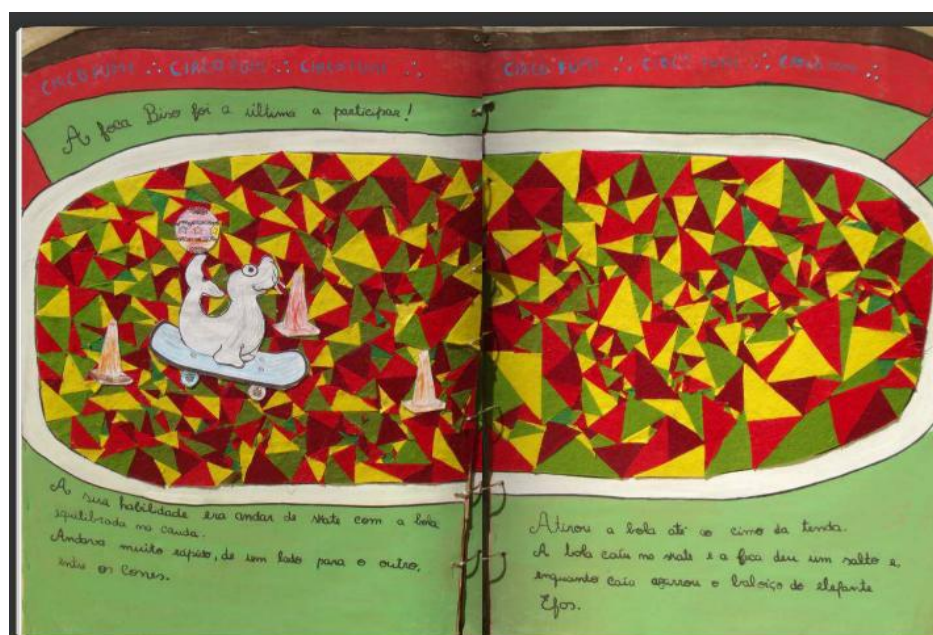 CIRCO FUMI ∴ CIRCO FUMI ∴ CIRCO FUMI ∴
CIRCO FUMI ∴ CIRCO FUMI ∴ CIRCO FUMI ∴
A foca Biso foi a última a participar!
A sua habilidade era andar de skate com a bola
equilibrada na cauda.
Andava muito rápido, de um lado para o outro,
entre os cones.
Atirou a bola até ao cimo da tenda.
A bola caíu no skate e a foca deu um salto e,
enquanto caía agarrou o baloiço do elefante
Efos.